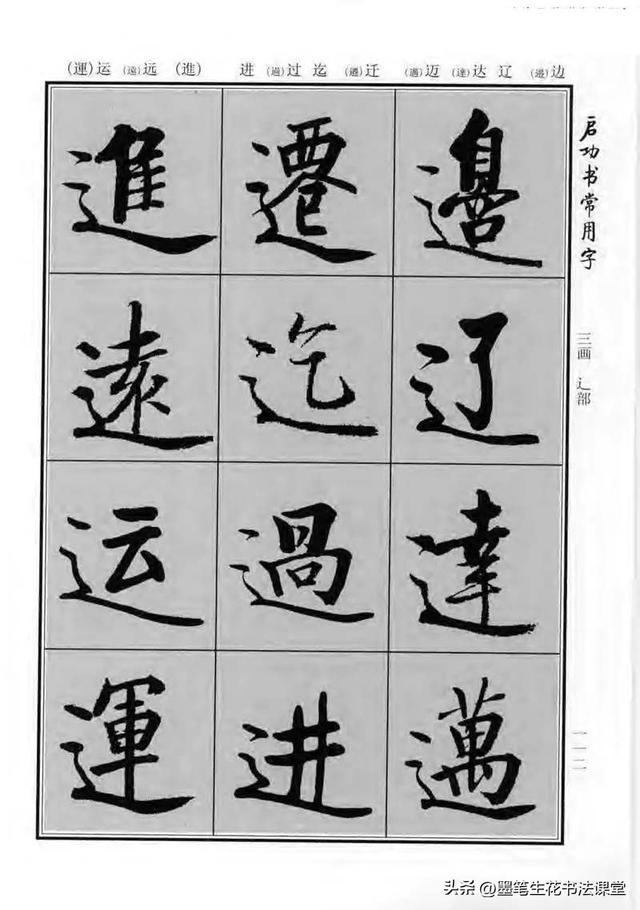 (運)运 (遠)远 (進) 进 (過)过 迄 (遷)迁 (邁)迈 (達)达 辽 (邊)边
启功书常用字
三画 辶部
一一二
邊辽達邁
遷迄過进
進遠运運
头条@墨笔生花书法课堂